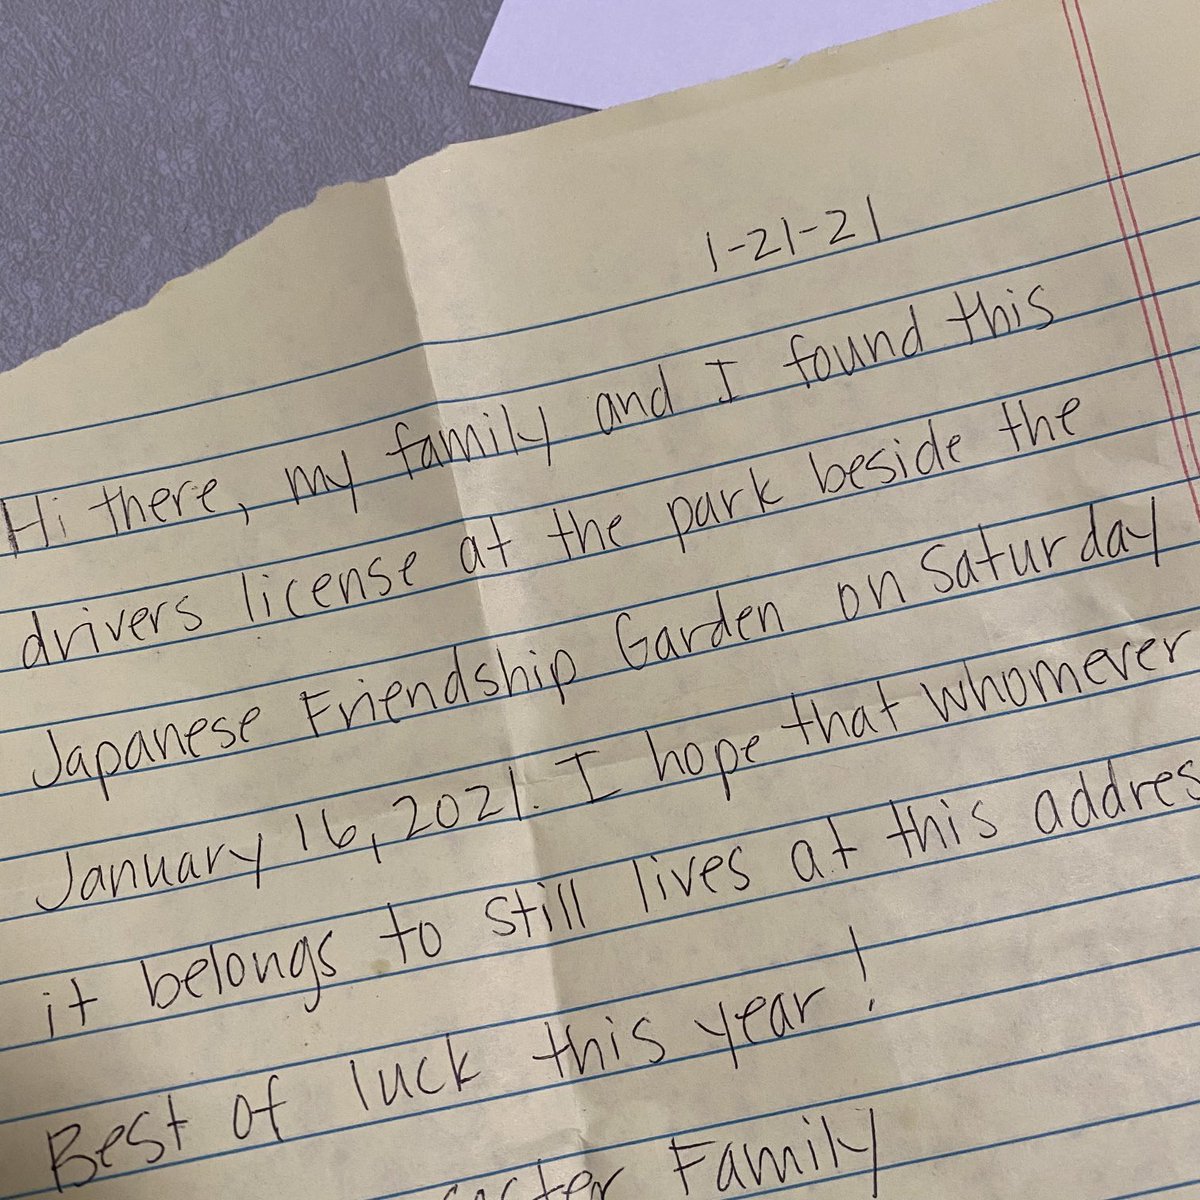 1-21-21
Hi there, my family and I found this
drivers license at the park beside the
Japanese Friendship Garden on Saturday
January 16, 2021. I hope that whomever
it belongs to still lives at this addres
Best of luck this year!
Family